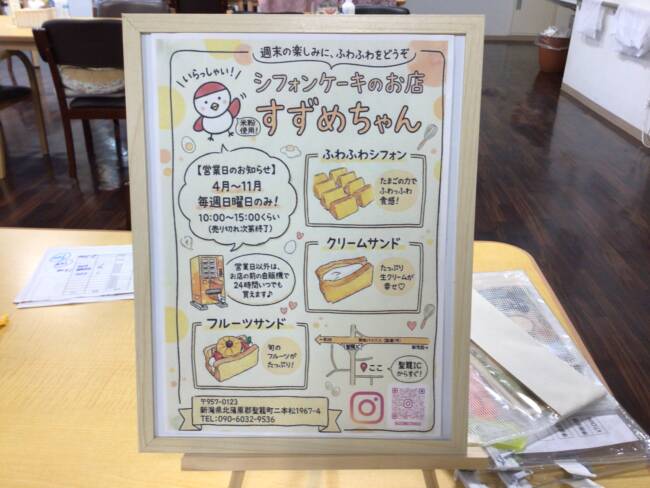 週末の楽しみに、ふわふわをどうぞ
いらっしゃい!
シフォンケーキのお店
すずめちゃん
米粉
使用!
【営業日のお知らせ】
4月〜11月
毎週日曜日のみ!
10:00〜15:00くらい
(売り切れ次第終了)
ふわふわシフォン
たまごの力で
ふわっふわ
食感!
営業日以外は、
お店の前の自販機で
24時間いつでも
買えます♪
クリームサンド
たっぷり
生クリームが
幸せ♡
フルーツサンド
旬の
フルーツが
たっぷり!
聖籠IC
ここ
聖籠IC
からすぐ!
〒957-0123
新潟県北蒲原郡聖籠町二本松1967-4
TEL:090-6032-9536